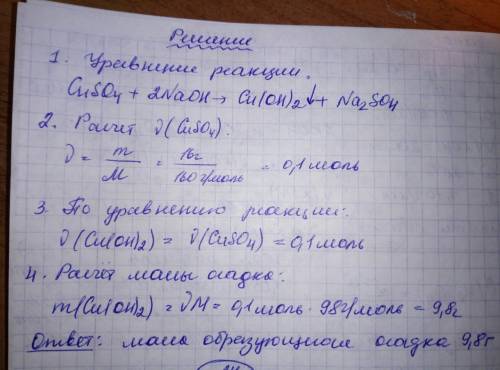 Решение
1. Уравнение реакции.
CuSO4 + 2NaOH → Cu(OH)2↓ + Na2SO4
2. Расчёт ν(CuSO4):
ν = m/M = 16г/160г/моль = 0,1 моль
3. По уравнению реакции:
ν(Cu(OH)2) = ν(CuSO4) = 0,1 моль
4. Расчёт массы осадка:
m(Cu(OH)2) = νM = 0,1 моль · 98г/моль = 9,8г
Ответ: масса образующегося осадка 9,8г